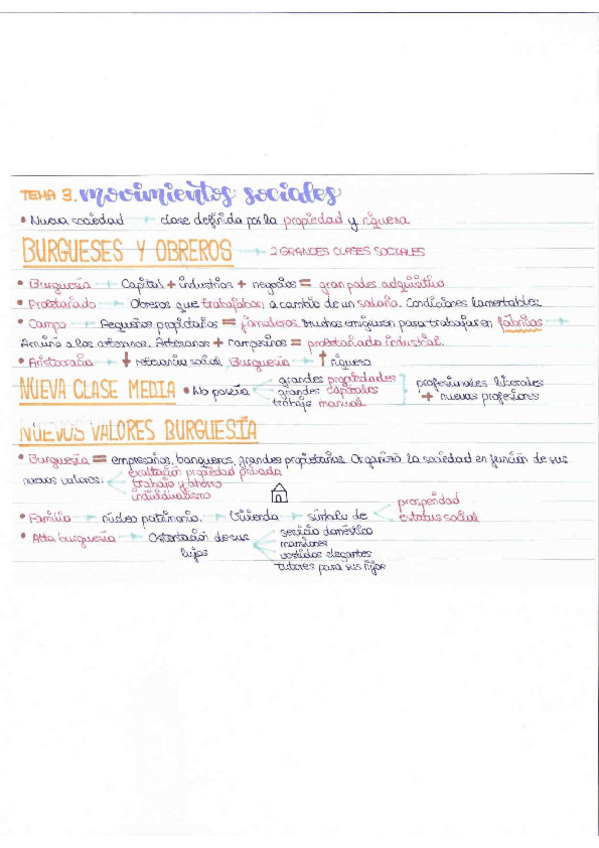 TEMA 3. movimientos sociales
• Nueva sociedad → clase definida por la propiedad y riqueza.
BURGUESES Y OBREROS → 2 GRANDES CLASES SOCIALES
• Burguesía → Capital + industrias + negocios = gran poder adquisitivo
• Proletariado → Obreros que trabajaban, a cambio de un salario. Condiciones lamentables.
• Campo → Pequeños propietarios = jornaleros. Muchos emigraron para trabajar en fábricas →
Arruinó a los artesanos. Artesanos + campesinos = proletariado industrial.
• Aristocracia → ↓ relevancia social. Burguesía → ↑ riqueza
NUEVA CLASE MEDIA • No poseía
grandes propiedades
grandes capitales
trabajo manual
profesionales liberales
+ nuevas profesiones
NUEVOS VALORES BURGUESÍA
• Burguesía = empresarios, banqueros, grandes propietarios. Organizó la sociedad en función de sus
nuevos valores:
exaltación propiedad privada
trabajo y ahorro
individualismo
• Familia → núcleo patrimonio. → Vivienda → símbolo de
prosperidad
estatus social
• Alta burguesía → Ostentación de sus
lujos
servicio doméstico
mansiones
vestidos elegantes
tutores para sus hijos